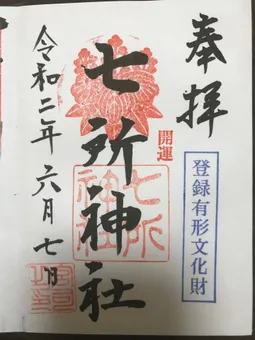 奉拝
開運
登録有形文化財
七所神社
七所神社
令和二年六月七日